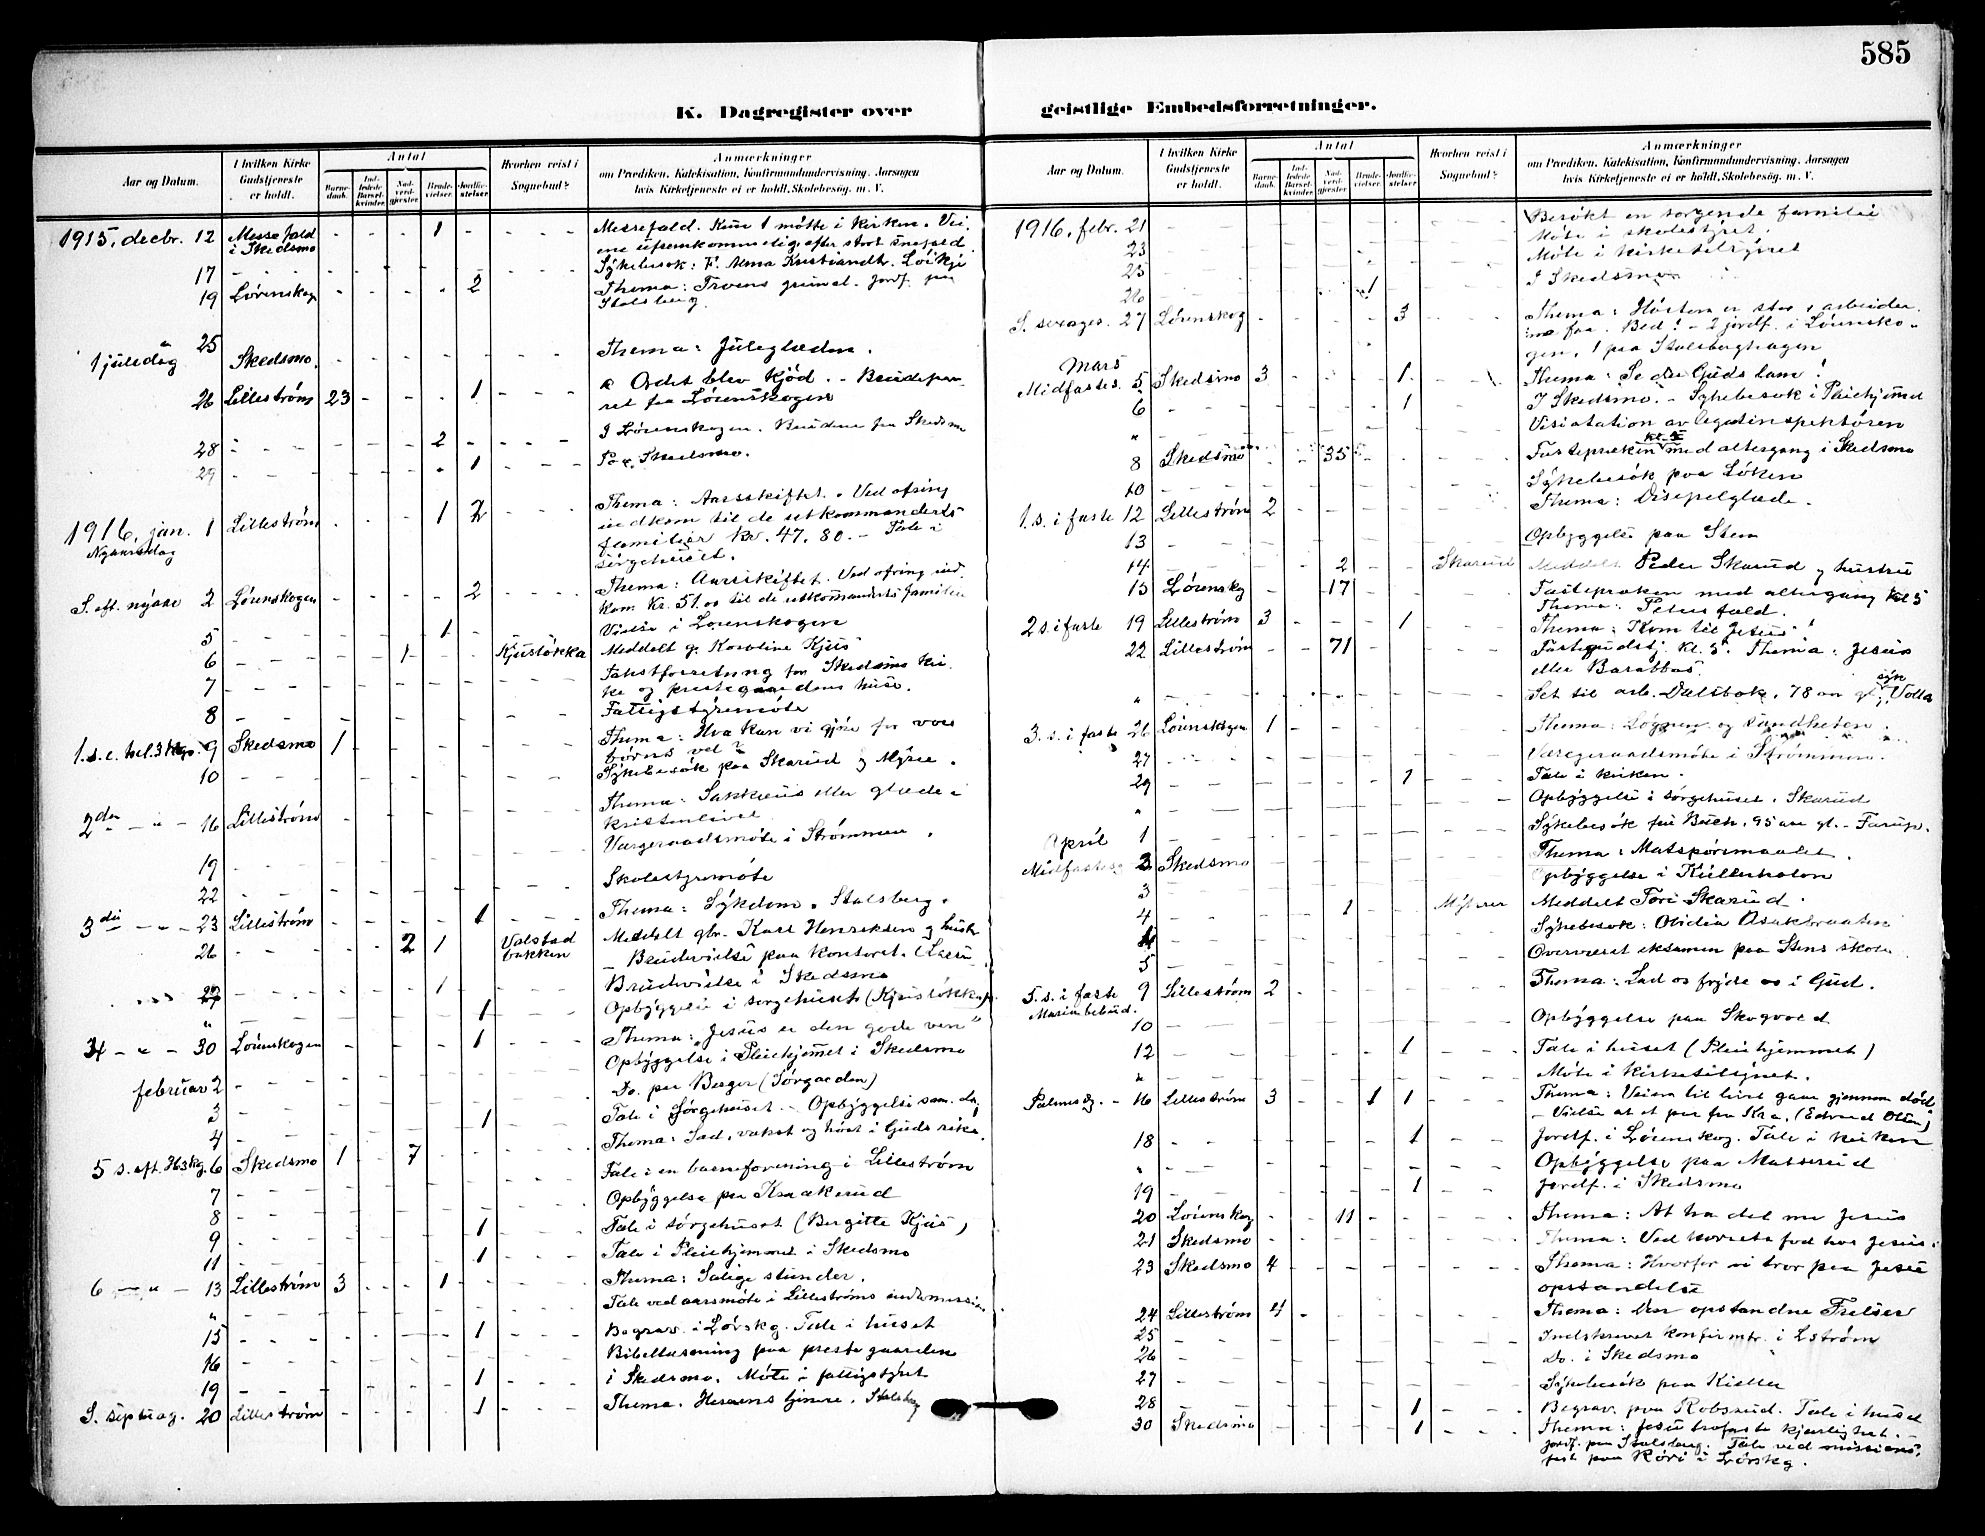 585
K. Dagregister over
Aar og Datum. I hvilken Kirke Gudstjeneste er holdt. Antal Barnedaab. Indledede Barselkvinder. Nadverdgjester. Brudevielser. Jordfæstelser. Hvorhen reist i Sognebud? Anmærkninger om Prædiken, Katekisation, Konfirmandundervisning, Aarsagen hvis Kirketjeneste ei er holdt, Skolebesøg. m. V.
1915, decbr. 12 Messefald i Skedsmo - - - 1 - - - - Messefald. Kun 1 møtte i kirken. Veiene ufremkommelig efter stort snefald.
17 Sykebesøk: F. Alma Kristiandtr.
19 Lørenskogen - - - - 2 - - - Thema: Troens grund. Jordf. paa Stalsberg.
1 juledag 25 Skedsmo. Thema: Juleglæden.
26 Lillestrøm 23 - - - 1 - - - Ordet blev Kjød. - Brudepar fra Lørenskogen
28 - - - 2 - - - - I Lørenskogen. Brudene fra Skedsmo
29 - - - - 1 Skedsmo.
1916, jan. 1 Nyaarsdag Lillestrøm - - - 1 2 - - - Thema: Aarsskiftet. Ved ofring indkom til de utkommanderts familier kr. 47,80. - Tale i sørgehuset.
S. eft. nyaar 2 Lørenskogen - - - - 2 - - - Thema: Aarsskiftet. Ved ofring indkom Kr. 51.00 til de utkommanderts familier
5 - - - 1 Vielse i Lørenskogen
6 - - 1 - - Kjusløkka Meddelt g. Karoline Kjus
7 Takstforretning for Skedsmo kirke og prestegaardens huse.
8 Fattigstyremøte
1. s. e. hel. 3 kgs. 9 Skedsmo 1 Thema: Hva kan vi gjøre for vore børns vel?
10 Sykebesøk paa Skarud og Myrer.
2den - " - 16 Lillestrøm Thema: Sakkæus eller glæde i kristenlivet
19 Værgeraadsmøte i Strømmen.
22 Skolestyremøte
3die - " - 23 Lillestrøm - - - - 1 Thema: Sykdom. Stalsberg.
26 - - 2 1 - Valstad bakken Meddelt gbr. Karl Henriksen og hustr. - Brudevielse paa kontoret.
27 - - - 1 Brudvielse i Skedsmo
" - - - - 1 Opbyggelse i sørgehuset (Kjusløkka).
4 - " - 30 Lørenskogen - - - - 1 Thema: "Jesus er den gode ven"
Opbyggelse i Pleiehjemmet i Skedsmo
februar 2 Do. paa Berger (Sørgaarden)
3
4 - - - - 1 Tale i Sørgehuset. - Opbyggelse sam. dag.
5 s. eft. H3kg. 6 Skedsmo 1 - 7 Thema: Sad, vækst og høst i Guds rike.
7 Tale i en barneforening i Lillestrøm
8 Opbyggelse paa Kraakerud
9 - - - - 1 Tale i sørgehuset (Bergitte Kjus)
11 - - - - 1 Tale i Pleiehjemmet i Skedsmo
6 - " - 13 Lillestrøm 3 - - 1 Thema: Salige stunder.
" Tale ved aarsmøte i Lillestrøms indremission
15 - - - - 1 Begrav. i Lørskg. Tale i huset
16 Bibellæsning paa prestegaarden
19 - - - - 1 i Skedsmo. Møte i fattigstyret
S. septuag. 20 Lillestrøm - - - - 1 Thema. Herrens tjenere. Stalsberg
geistlige Embedsforretninger.
Aar og Datum. I hvilken Kirke Gudstjeneste er holdt. Antal Barnedaab. Indledede Barselkvinder. Nadverdgjester. Brudevielser. Jordfæstelser. Hvorhen reist i Sognebud? Anmærkninger om Prædiken, Katekisation, Konfirmandundervisning, Aarsagen hvis Kirketjeneste ei er holdt, Skolebesøg. m. V.
1916, febr. 21 Besøkt en sørgende familie
23 Møte i skolestyret.
25 Møte i kirketilsynet
26 - - - 1 I Skedsmo
S. sexages. 27 Lørenskog - - - - 3 Thema: Høsten er stor, arbeiderne faa. Bed! - 2 jordf. i Lørenskogen, 1 paa Stalsberghagen
Mars
Midfastes. 5 Skedsmo 3 - - - 1 Thema: Se det Guds lam!
6 - - - - 1 I Skedsmo. - Sykebesøk i Pleiehjemmet
" Visitation av legatinspektøren
8 Skedsmo - - 35 Fastepræken kl. 5 med altergang i Skedsmo
10 Sykebesøk paa Løken
1. s. i faste 12 Lillestrøm 2 Thema: Disipelglæde.
13 Opbyggelse paa Sten
14 - - 2 - - Skarud Meddelt Peder Skarud og hustru
15 Lørenskg - - 17 Fastepræken med altergang kl 5 Thema: Peters fald.
2 s. i faste 19 Lillestrøm 3 - - - 1 Thema: Kom til Jesus!
22 Lillestrøm - - 71 Fastegudstj. kl. 5. Thema: Jesus eller Barabbas
" Set til arb. Dælibak, 78 aar gl., syk Volla
3. s. i faste 26 Lørenskogen 1 Thema: Løgnen og sandheten
27 Værgeraadsmøte i Strømmen.
29 - - - - 1 Tale i kirken.
" Opbyggelse i sørgehuset. Skarud
April 1 Sykebesøk fru Buch. 95 aar gl. - Farup.
Midfastes. 2 Skedsmo Thema: Matspørsmaalet.
3 Opbyggelse i Kullerholen
4 - - 1 Meddelt Tori Skarud.
Sykebesøk: Obidia
5 Overværet eksamen paa Stens skole
5. s. i faste 9 Lillestrøm 2 Thema: Lad os fryde os i Gud.
Mariæ bebud.
10 Opbyggelse paa Skogvold
12 - - - - 1 Tale i huset (Pleiehjemmet)
" Møte i kirketilsynet.
Palmesdg. - 16 Lillestrøm 3 - - 1 1 Thema: Veien til livet gaar gjennem død
- Vielse at et par fra Kra. (Edvard Olsen)
18 - - - - 1 Jordf. i Lørenskog. Tale i kirken
" Opbyggelse paa Matserud
19 - - - - 1 Jordf. i Skedsmo
20 Lørenskog - - 11 Thema: At ha del me Jesus
21 Skedsmo Thema: Ved korsets fod hos Jesus.
23 Skedsmo 4 Thema: Hvorfor vi tror paa Jesu opstandelse
24 Lillestrøm 4 Thema: Den opstandne Frelser
25 Indskrevet konfirmtr. i Lstrøm
26 Do. i Skedsmo
27 Sykebesøk paa Kjeller
28 - - - - 1 Begrav. paa Robsrud. Tale i huset
30 Skedsmo - - - - 1 Thema: Jesu trofaste kjærlighet. -
Jordf. paa Stalsberg. Tale ved missions-
fest paa Kåri i Lørskg.